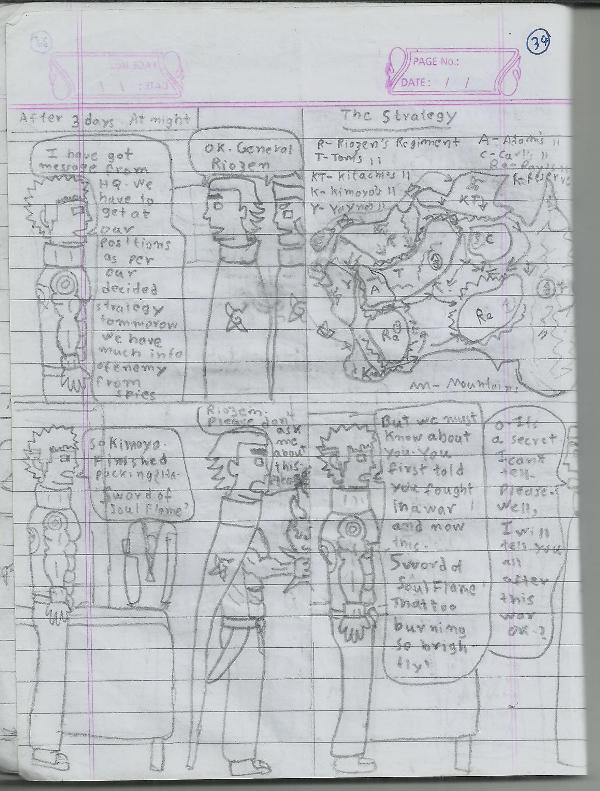 39
PAGE NO.:
DATE: / /
After 3 days. At night
I have got
message from
HQ. We
have to
get at
our
positions
as per
our
decided
strategy
tommorow
we have
much info
of enemy
from
spies
OK. General
Riozen
The Strategy
R- Riozen's Regiment
T- Tom's 11
KT- Kitache's 11
K- Kimoyo's 11
A- Adam's 11
C- Carl's 11
KT
K
C
T
A
Re
Re
K
M- Mountains
So Kimoyo.
Finished
packing
Sword of
Soul Flame?
Riozen.
Please don't
ask
me
about
this
But we must
Know about
you. You
first told
you fought
in a war
and now
this.
Sword of
Soul Flame
That too
burning
so brigh
tly!
a secret
I can't
tell.
Please.
Well,
I will
tell you
all
after
this
war
OK?